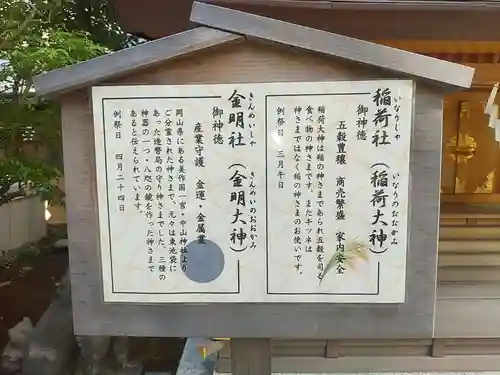 いなりしゃ いなりのおおかみ
稲荷社（稲荷大神）
御神徳
五穀豊穣 商売繁盛 家内安全
稲荷大神は稲の神さまであられ五穀を司る
食べ物の神さまです。またキツネは稲荷の
神さまではなく稲の神さまのお使いです。
例祭日 三月午日
きんめいしゃ きんめいのおおかみ
金明社（金明大神）
御神徳
産業守護 金運・金属業
岡山県にある美作国一宮・中山神社より
ご分霊された神さまで、元々は東池袋に
あった造幣局の守り神さまでした。三種の
神器の一つ・八咫の鏡を作った神さまで
あると伝えられています。
例祭日 四月二十四日